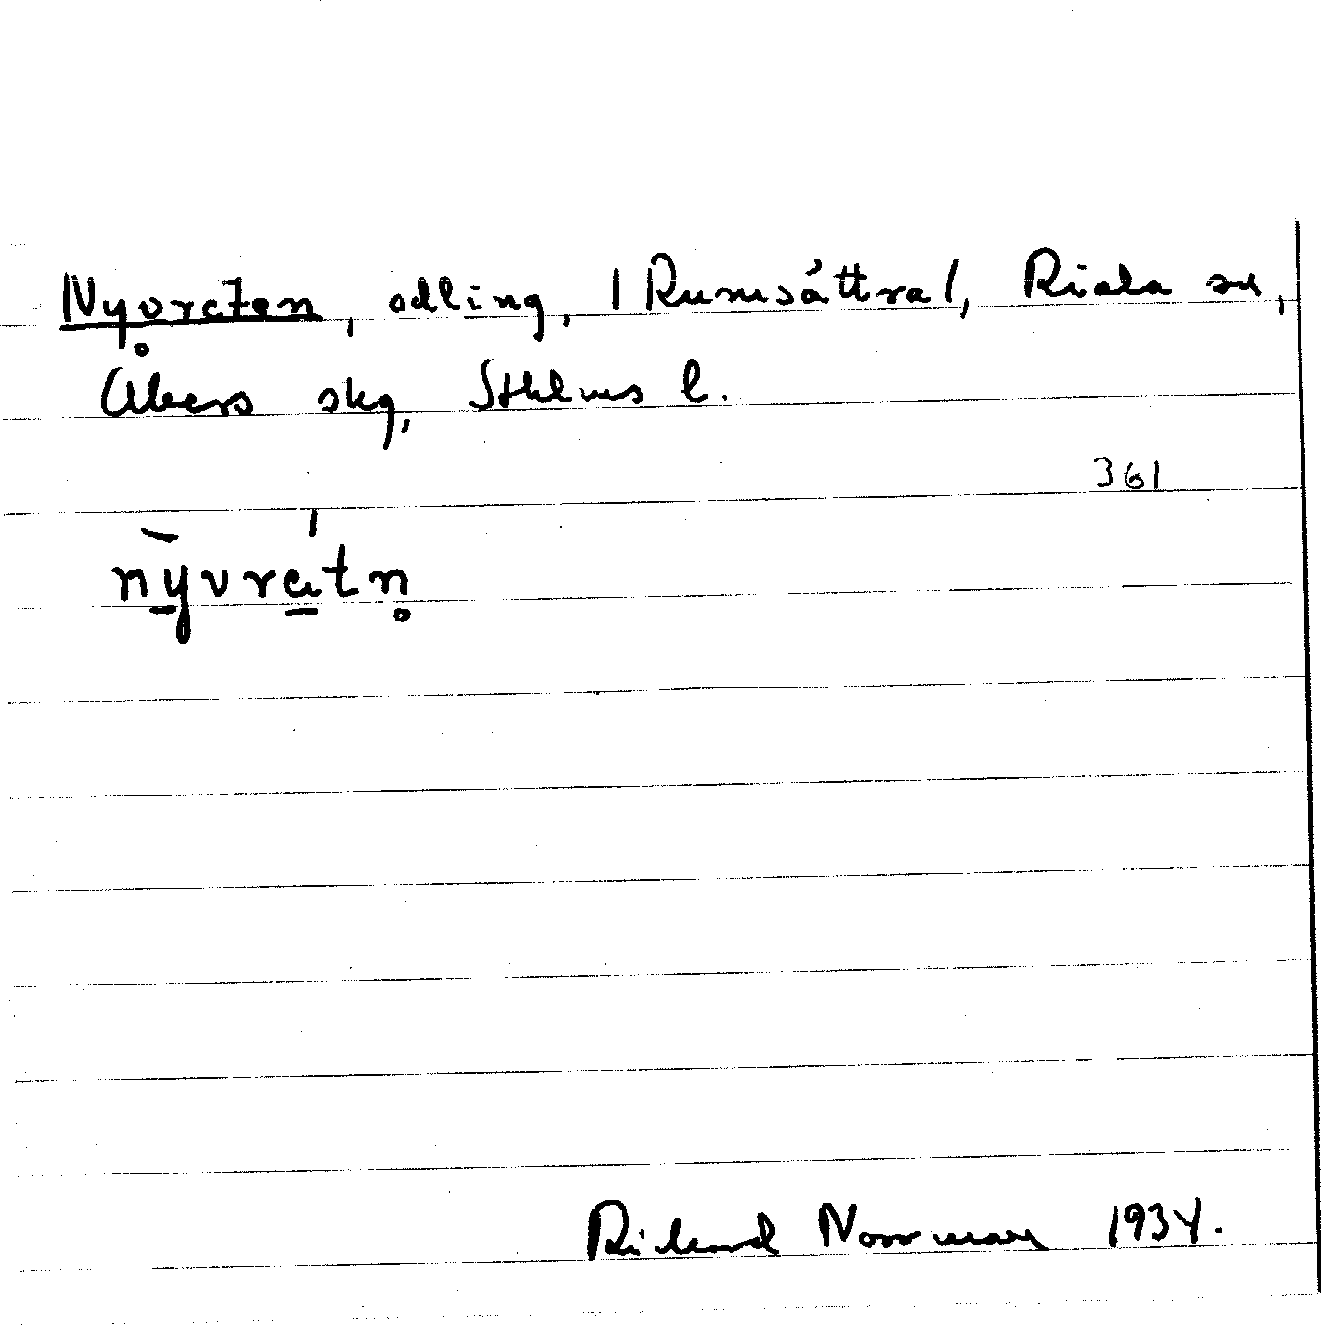 Nyvreten, odling, /Rumsättra/, Riala sn,
Åkers skg, Sthlms l.
361
nyvrätn
Rickard Norrman 1934.